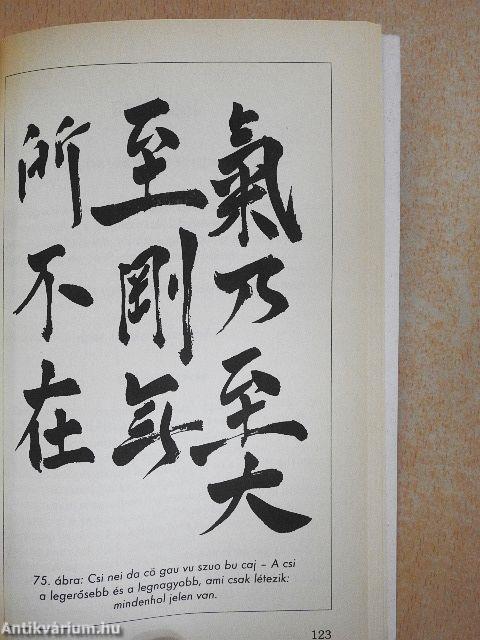 氣乃至大
至剛無
所不在
75. ábra: Csi nei da cö gau vu szuo bu caj – A csi
a legerősebb és a legnagyobb, ami csak létezik:
mindenhol jelen van.
123
Antikvárium.hu